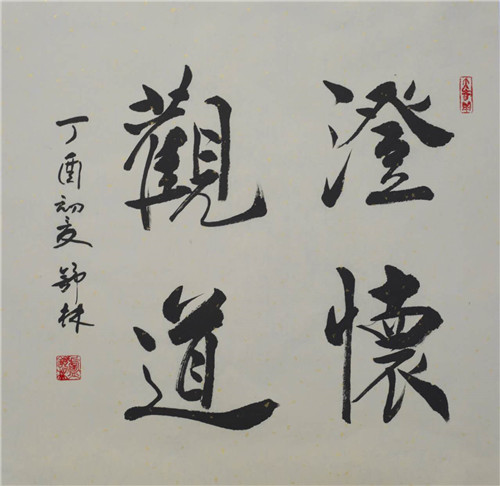 澄懷
觀道
丁酉初夏舒林